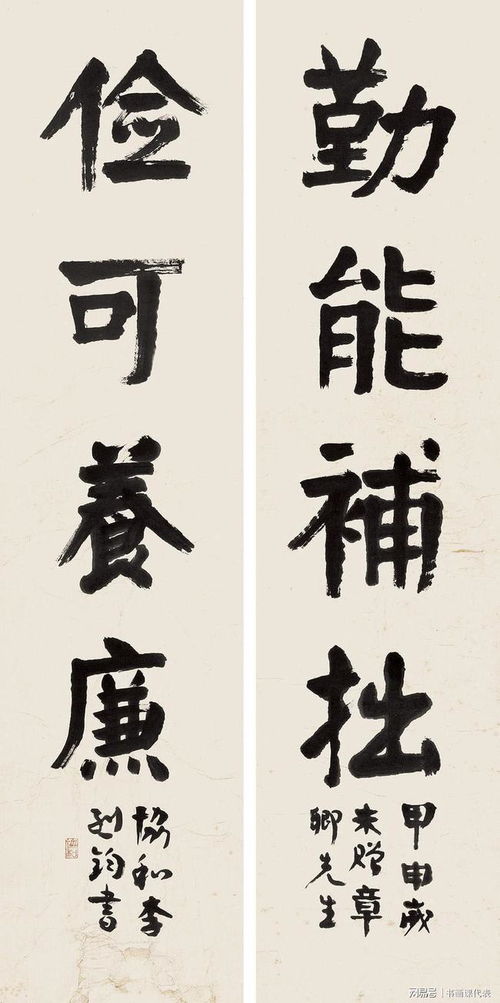 勤能補拙
甲申歲
末贈章
卿先生
儉可養廉
協和李
烈鈞書
网易号 | 书画课代表